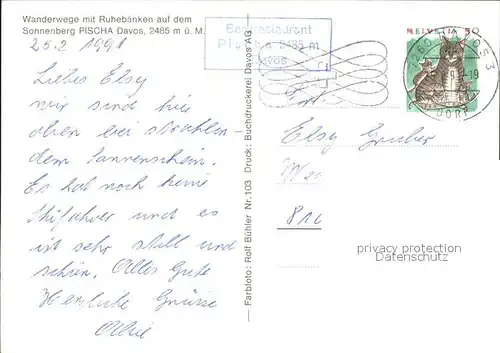 Wanderwege mit Ruhebänken auf dem
Sonnenberg PISCHA Davos, 2485 m ü. M.
25.2 1991
Liebes Elsy
wir sind hie
oben bei strahlen-
dem Sonnenschein.
Es hat noch keine
Skifahrer und es
ist sehr still und
schön. Alles Gute
Herzliche Grüsse
Bergrestaurant
Pischa 2485 m
Davos
Farbfoto: Rolf Bühler Nr. 103 Druck: Buchdruckerei Davos AG
HELVETIA 50
7260 DAVOS 3
DORF
Elsy Gruber
privacy protection
DATENSCHUTZ